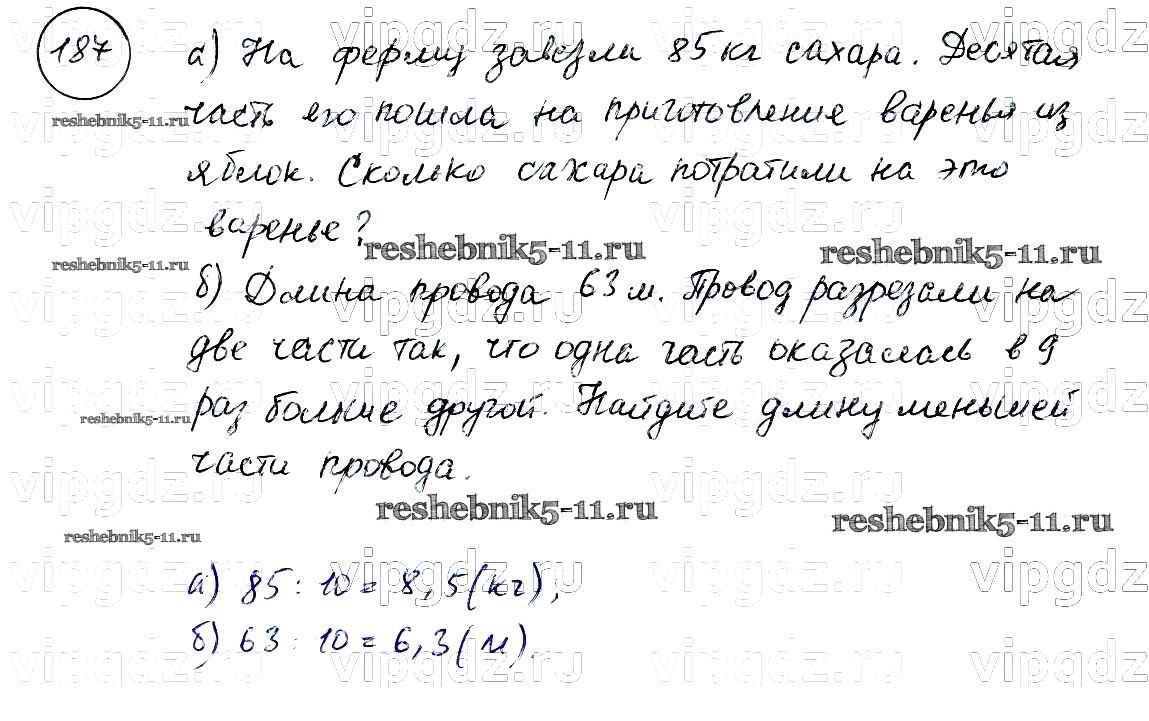 187 а) На ферму завезли 85 кг сахара. Десятая
часть его пошла на приготовление варенья из
reshebnik5-11.ru
яблок. Сколько сахара потратили на это
варенье?
reshebnik5-11.ru reshebnik5-11.ru
reshebnik5-11.ru
б) Длина провода 63 м. Провод разрезали на
две части так, что одна часть оказалась в 9
раз больше другой. Найдите длину меньшей
reshebnik5-11.ru
части провода.
reshebnik5-11.ru reshebnik5-11.ru
reshebnik5-11.ru
а) 85 : 10 = 8,5 (кг);
б) 63 : 10 = 6,3 (м).
vipgdz.ru vipgdz.ru vipgdz.ru vipgdz